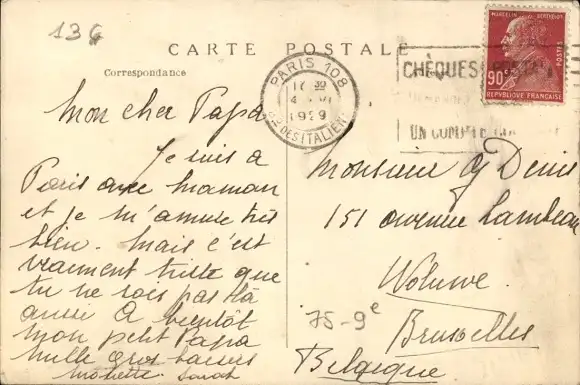 136
CARTE POSTALE
Correspondance
PARIS 108
17 30
4 VI
1929
DES ITALIENS
CHÈQUES POSTAUX
UN COMPTE
MARCELIN BERTHELOT
POSTES
90c
REPUBLIQUE FRANÇAISE
Mon cher Papa
Je suis a
Paris avec Maman
et je m'amuse très
bien. Mais c'est
vraiment triste que
tu ne sois pas là
aussi A bientôt
mon petit Papa
Mille gros baisers
Monsieur G Denis
151 avenue Lambeau
Woluwe
Bruxelles
Belgique
75-9e